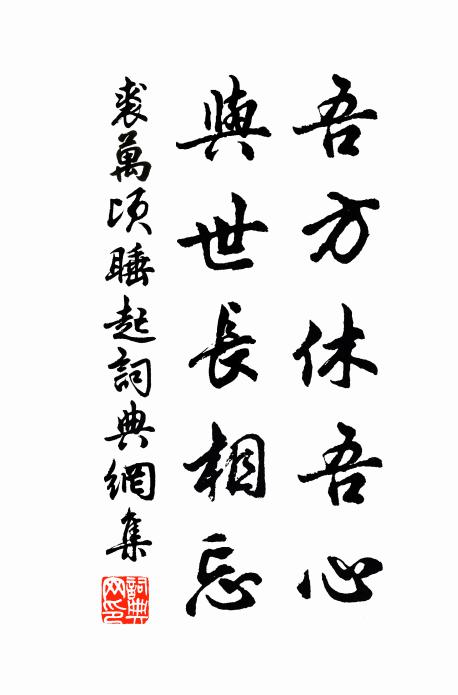 吾方休吾心
與世長相忘
裘萬頃睡起詞典網集
詞典網印